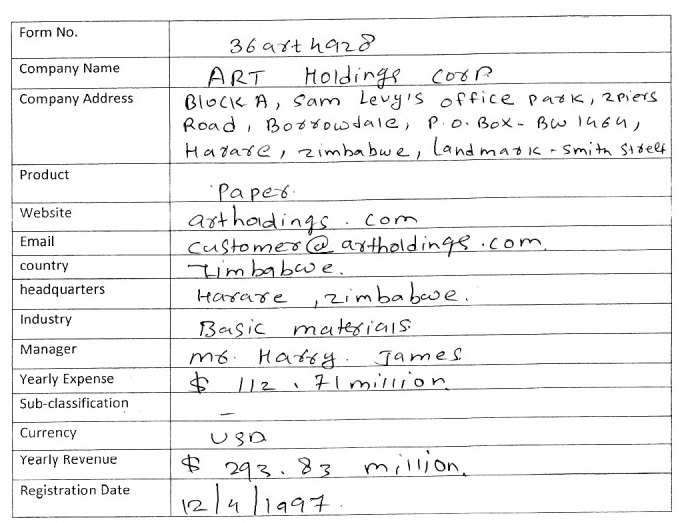 Form No. 36arth928
Company Name ART Holdings corp
Company Address Block A, Sam Levy's office park, 2piers
Road, Borrowdale, P.O.Box- BW 1464,
Harare, zimbabwe, Landmark - Smith Street
Product Paper.
Website artholdings.com
Email customer@artholdings.com.
country Zimbabwe.
headquarters Harare, zimbabwe.
Industry Basic materials.
Manager mr. Harry. James
Yearly Expense $ 112.71 million.
Sub-classification –
Currency USD
Yearly Revenue $ 293.83 million.
Registration Date 12/4/1997.